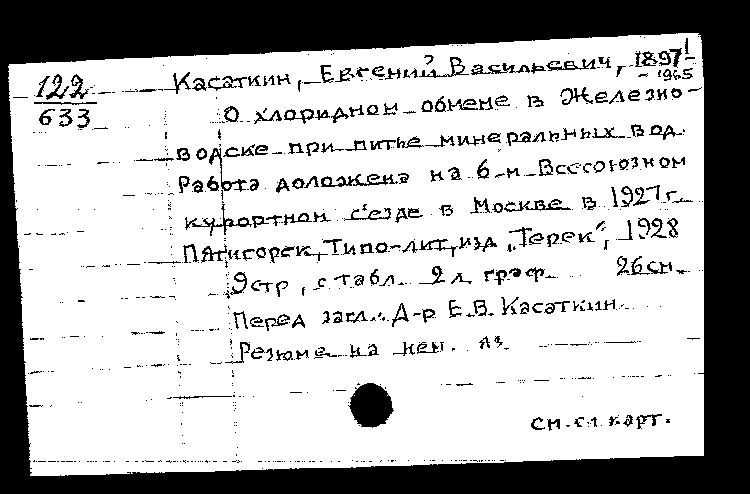 122
633
Касаткин, Евгений Васильевич, 1897-
- 1965
О хлоридном обмене в Железно-
водске при питье минеральных вод.
Работа доложена на 6-м Всесоюзном
курортном с'езде в Москве в 1927 г.
Пятигорск, Типо-лит, изд „Терек“, 1928
9стр, с табл. 2 л. граф. 26см.
Перед загл.: Д-р Е.В. Касаткин.
Резюме на нем. яз.
См. сл. карт.